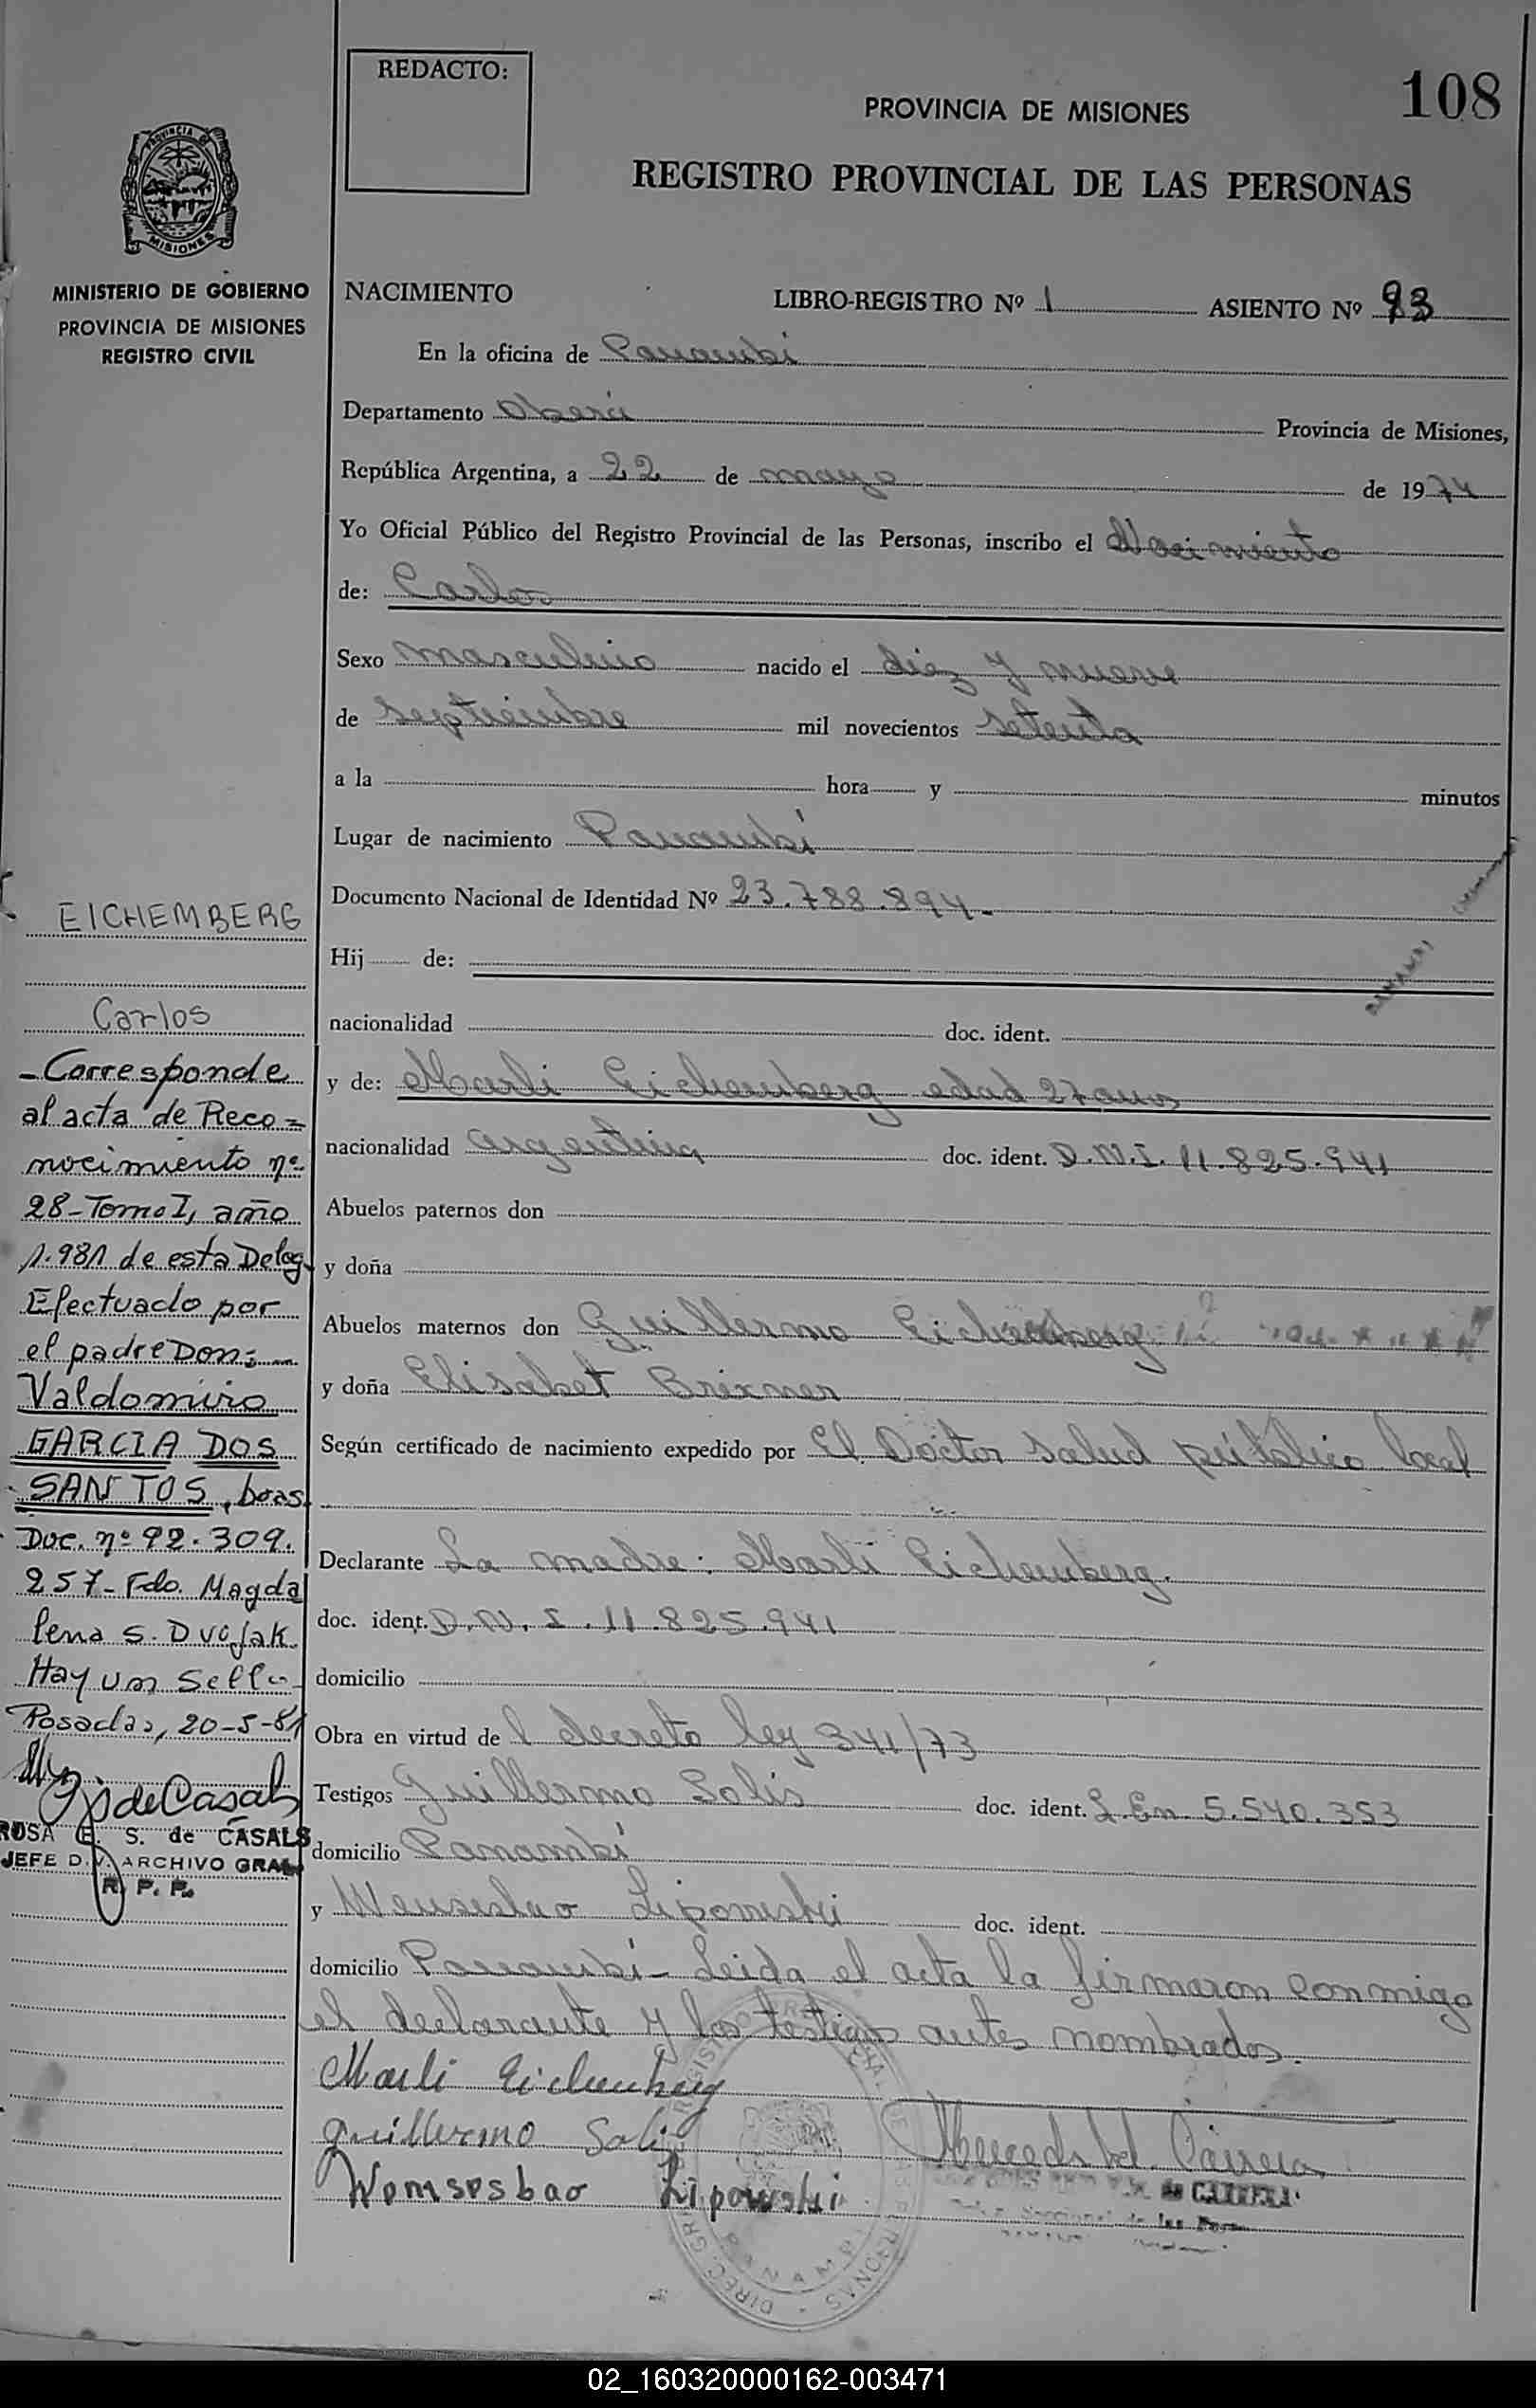 REDACTO:
108
PROVINCIA DE MISIONES
REGISTRO PROVINCIAL DE LAS PERSONAS
PROVINCIA DE
MISIONES
MINISTERIO DE GOBIERNO
PROVINCIA DE MISIONES
REGISTRO CIVIL
NACIMIENTO LIBRO-REGISTRO Nº 1 ASIENTO Nº 93
En la oficina de Panambí
Departamento Oberá Provincia de Misiones,
República Argentina, a 22 de mayo de 1974
Yo Oficial Público del Registro Provincial de las Personas, inscribo el Nacimiento
de: Carlos
Sexo masculino nacido el diez y nueve
de septiembre mil novecientos setenta
a la hora y minutos
Lugar de nacimiento Panambí
Documento Nacional de Identidad Nº 23.788.894.
Hij de:
nacionalidad doc. ident.
y de: Marli Eichemberg edad 27 anos
nacionalidad argentina doc. ident. D.N.I. 11.825.941
Abuelos paternos don
y doña
Abuelos maternos don Guillermo Eichemberg
y doña Elisabet Brixner
Según certificado de nacimiento expedido por El Doctor salud pública local
Declarante La madre: Marli Eichemberg.
doc. ident. D.N.I. 11.825.941
domicilio
Obra en virtud de l decreto ley 341/73
Testigos Guillermo Solis doc. ident. L.En. 5.540.353
domicilio Panambí
y Wenseslao Lipowski doc. ident.
domicilio Panambí - Leida el acta la firmaron conmigo
el declarante y los testigos antes nombrados.
Marli Eichemberg
Guillermo Solis
Wemsesbao Lipowski
Mercedes de Carrera
de CARRERA
EICHEMBERG
Carlos
- Corresponde
al acta de Reco=
nocimiento nº
28-Tomo I, año
1.981 de esta Deleg.
Efectuado por
el padre Don:
Valdomiro
GARCIA DOS
SANTOS, bras.
Doc. nº 92.309.
257- Fdo. Magda
lena S. Dvojak.
Hay um Sello-
Posadas, 20-5-81
S de Casals
ROSA E. S. de CASALS
JEFE DIV. ARCHIVO GRAL
R. P. P.
02_160320000162-003471